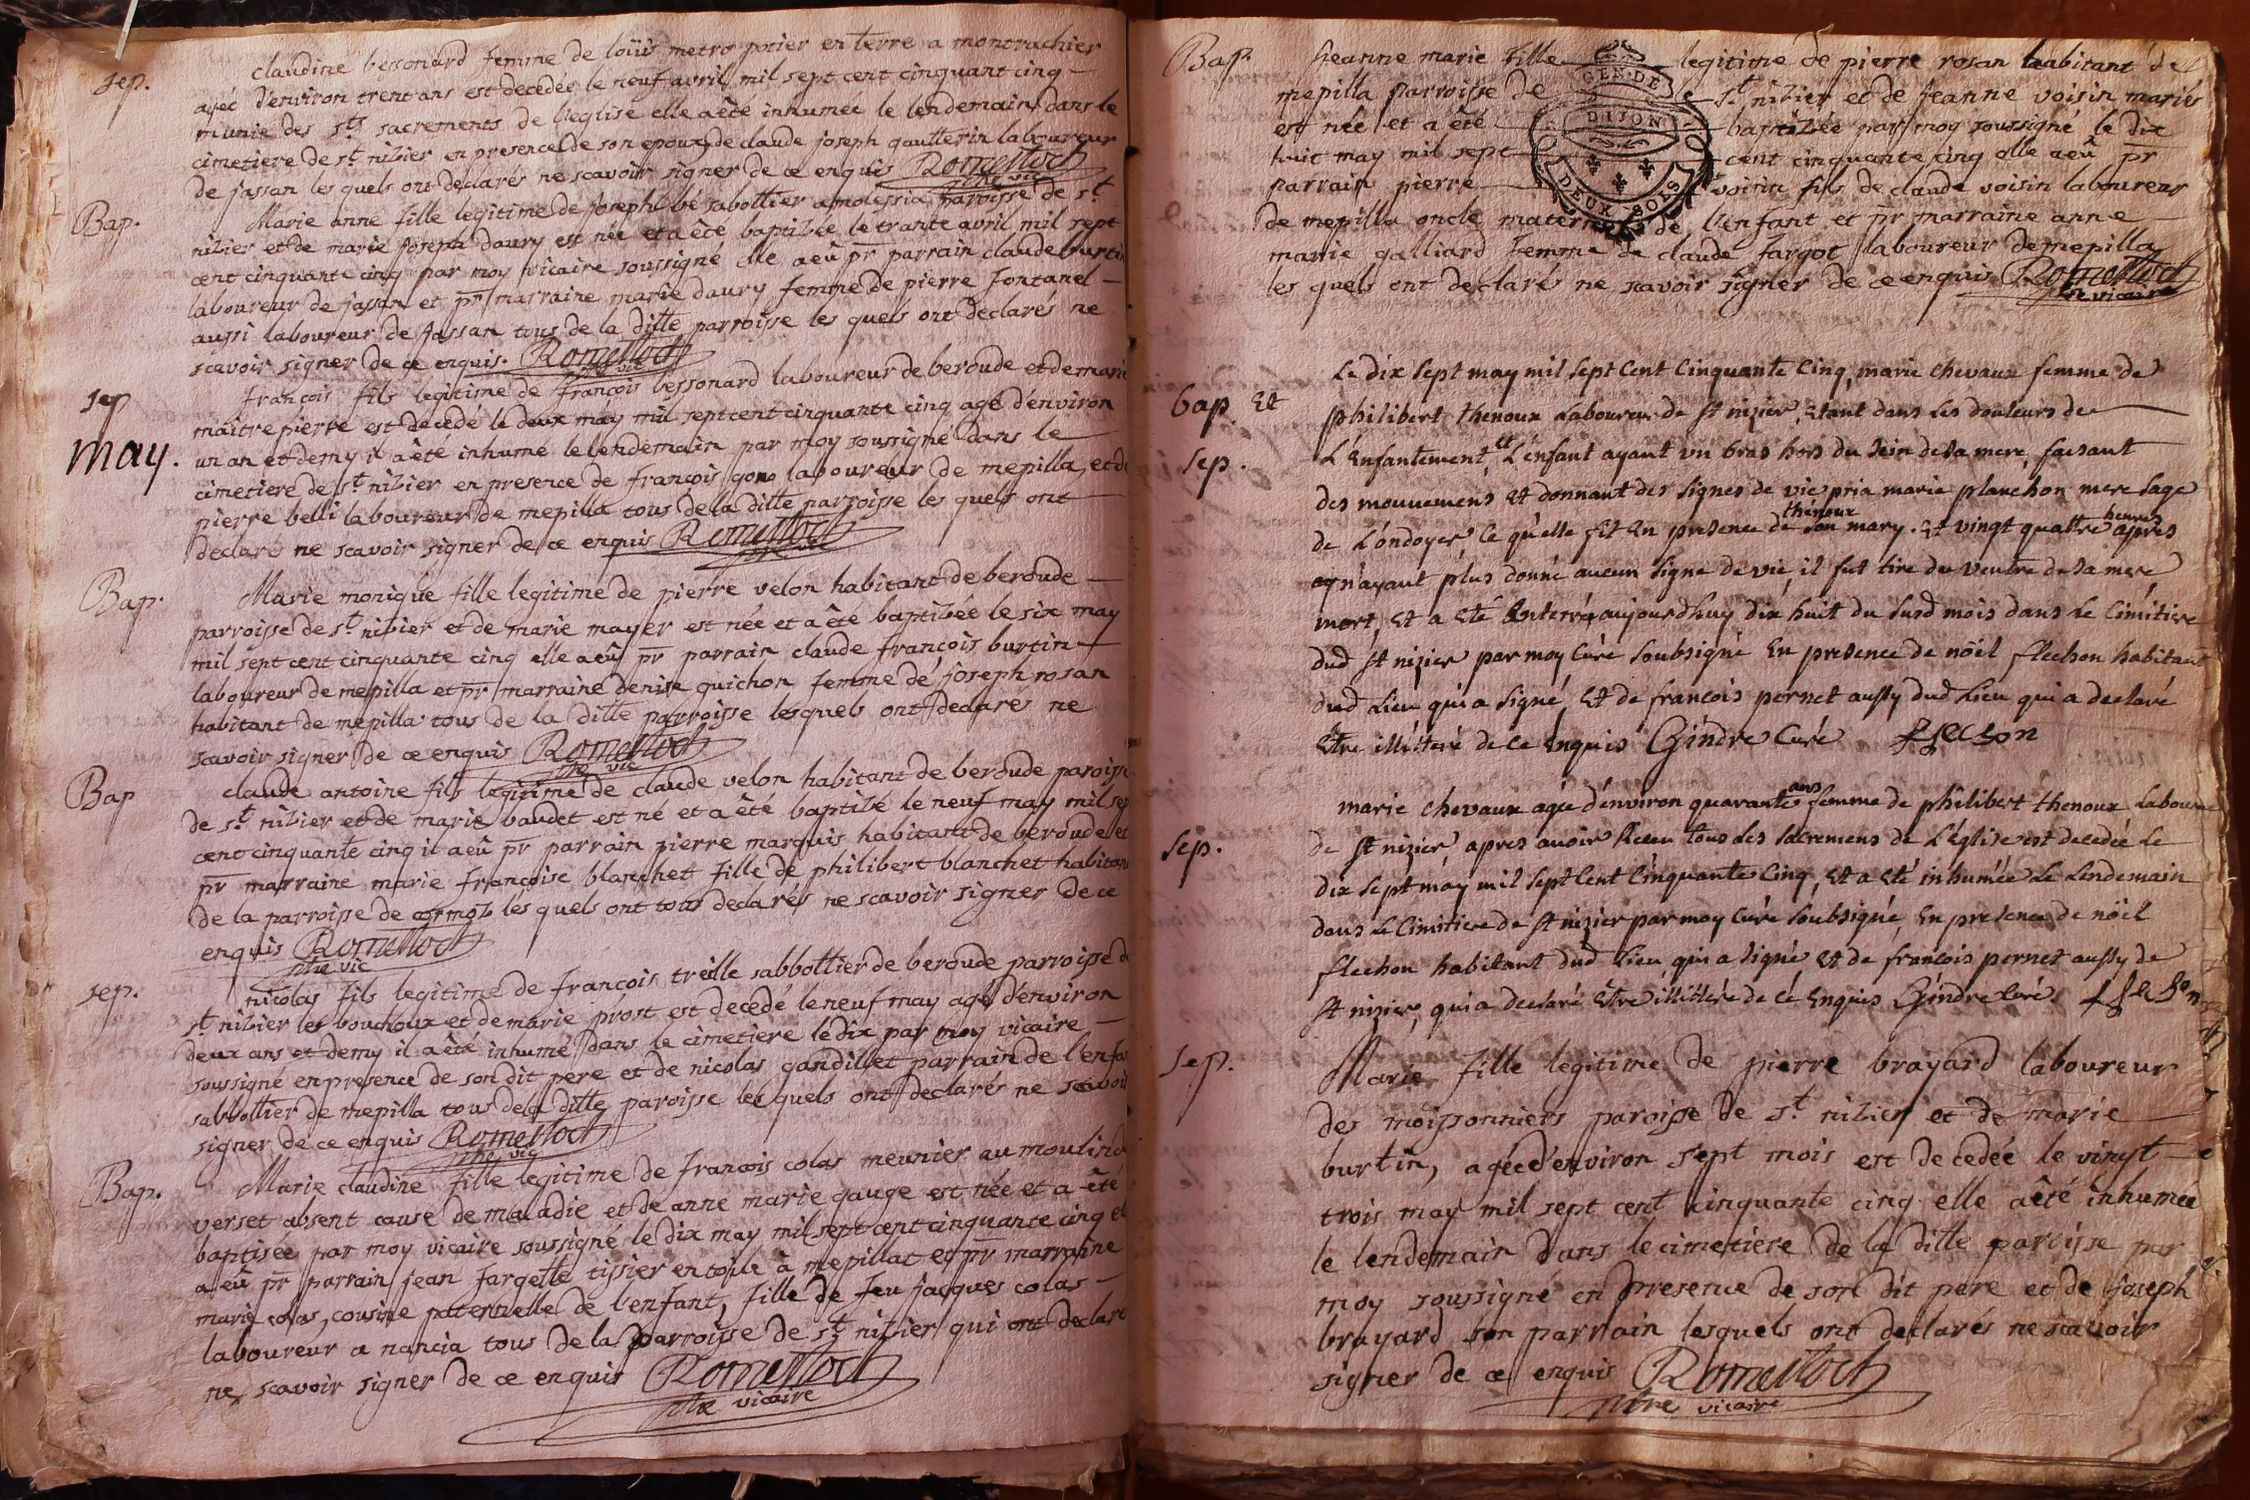 sep.
claudine bessonard femme de loüis metro potier en terre a montrachier
agée d'environ trent ans est decedée le neuf avril mil sept cent cinquant cinq
munie des sts sacrements de l'eglise elle a êté inhumée le lendemain dans le
cimetiere de st nizier en presence de son epoux de claude joseph gautterin laboureur
de jassan les quels ont declarés ne scavoir signer de ce enquis Rometloch
ptre vic
Bap.
Marie anne fille legitime de joseph bé sabottier a molessia parroisse de st
nizier et de marie joseph daury est née et a êté baptizée le trante avril mil sept
cent cinquante cinq par moy vicaire soussigné elle a eû pr parrain claude burtin
laboureur de jassan et pr marraine marie daury femme de pierre fontanel
aussi laboureur de jassan tous de la ditte parroisse les quels ont declarés ne
scavoir signer de ce enquis. Rometloch
ptre vic
sep
may.
françois fils legitime de françois bessonard laboureur de beroude et de marie
maitrepierre est decedé le deux may mil sept cent cinquante cinq agé d'environ
un an et demy il a été inhumé le lendemain par moy soussigné dans le
cimetiere de st nizier en presence de françois gono laboureur de mepilla, et de
pierre belli laboureur de mepilla tous de la ditte parroisse les quels ont
declaré ne scavoir signer de ce enquis Rometloch
ptre vic
Bap.
Marie monique fille legitime de pierre velon habitant de beroude
parroisse de st nizier et de marie mayer est née et a êté baptizée le six may
mil sept cent cinquante cinq elle a eû pr parrain claude françois burtin
laboureur de mepilla et pr marraine denise quichon femme de joseph rosan
habitant de mepilla tous de la ditte parroisse lesquels ont declarés ne
scavoir signer de ce enquis Rometloch
ptre vic
Bap
claude antoine fils legitime de claude velon habitant de beroude paroisse
de st nizier et de marie vaudet est né et a êté baptizé le neuf may mil sep
cent cinquante cinq il a eû pr parrain pierre marquis habitant de beroude et
pr marraine marie françoise blanchet fille de philibert blanchet habitant
de la parroisse de cormoz les quels ont tous declarés ne scavoir signer de ce
enquis Rometloch
ptre vic
sep.
nicolas fils legitime de francois treille sabbottier de beroude parroisse d
st nizier les bouchoux et de marie prost est decedé le neuf may agé d'environ
deux ans et demy il a êté inhumé dans le cimetiere le dix par moy vicaire
soussigné en presence de son dit pere et de nicolas gandillet parrain de l'enfa
sabbottier de mepilla tous de la ditte paroisse les quels ont declarés ne scavoir
signer de ce enquis Rometloch
ptre vic
Bap.
Marie claudine fille legitime de francois colas meunier au moulin d
verset absent cause de maladie et de anne marie gauge est née et a êté
baptisée par moy vicaire soussigné le dix may mil sept cent cinquante cinq el
a eû pr parrain jean fargette tissier en toile à mepillat et pr marraine
marie colas, cousine paternelle de l'enfant, fille de feu jacques colas
laboureur a nancia tous de la parroisse de st nizier qui ont declaré
ne scavoir signer de ce enquis Rometloch
ptre vicaire
Bap.
Jeanne marie fille legitime de pierre rosan laabitant de
mepilla parroisse de st nizier et de jeanne voisin mariés
est née et a êté baptizée par moy soussigné le dix
huit may mil sept cent cinquante cinq elle a eû pr
parrain pierre voisin fils de claude voisin laboureur
de mepilla oncle maternel de l'enfant et pr marraine anne
marie galliard femme de claude fargot laboureur de mepilla
les quels ont declarés ne scavoir signer de ce enquis Rometloch
ptre vicaire
GEN. DE
DIJON
DEUX SOLS
bap. Et
sep.
Le dix sept may mil sept cent cinquante cinq, marie chevaux femme de
philibert thenoux Laboureur de st nizier, étant dans les douleurs de
L'enfantement, et L'enfant ayant un bras hors du sein de sa mere, faisant
des mouvemens et donnant des signes de vie pria marie planchon mere sage
de L'ondoyer ce qu'elle fit en presence de thenoux son mary. et vingt quattre heures apres
n'ayant plus donné aucun signe de vie, il fut tire du ventre de sa mere
mort, et a eté enterré aujourdhuy dix huit du susd mois dans Le Cimitiere
dud st nizier par moy Curé soubsigné En presence de nöel flechon habitant
dud Lieu qui a signé, et de francois pernet aussy dud Lieu qui a declaré
être illitteré de ce enquis Gindre Curé flechon
sep.
marie chevaux agée d'environ quarante ans femme de philibert thenoux Laboureur
de st nizier apres avoir Receu tous les sacremens de L'église est decedée Le
dix sept may mil sept cent cinquante cinq, et a eté inhumée Le Lendemain
dans Le Cimitiere de st nizier par moy curé soubsigné, En presence de nöel
flechon habitant dud Lieu, qui a signé et de francois pernet aussy de
st nizier, qui a declaré être illitteré de ce Enquis Gindre Curé flechon
sep.
Marie fille legitime de pierre brayard laboureur
des moissonniers paroisse de st nizier et de marie
burtin, agée d'environ sept mois est decedée le vingt
trois may mil sept cent cinquante cinq elle a êté inhumée
le lendemain dans le cimetiére de la ditte paroisse par
moy soussigné en presence de son dit pere et de joseph
brayard son parrain lesquels ont declarés ne scavoir
signer de ce enquis Rometloch
ptre vicaire